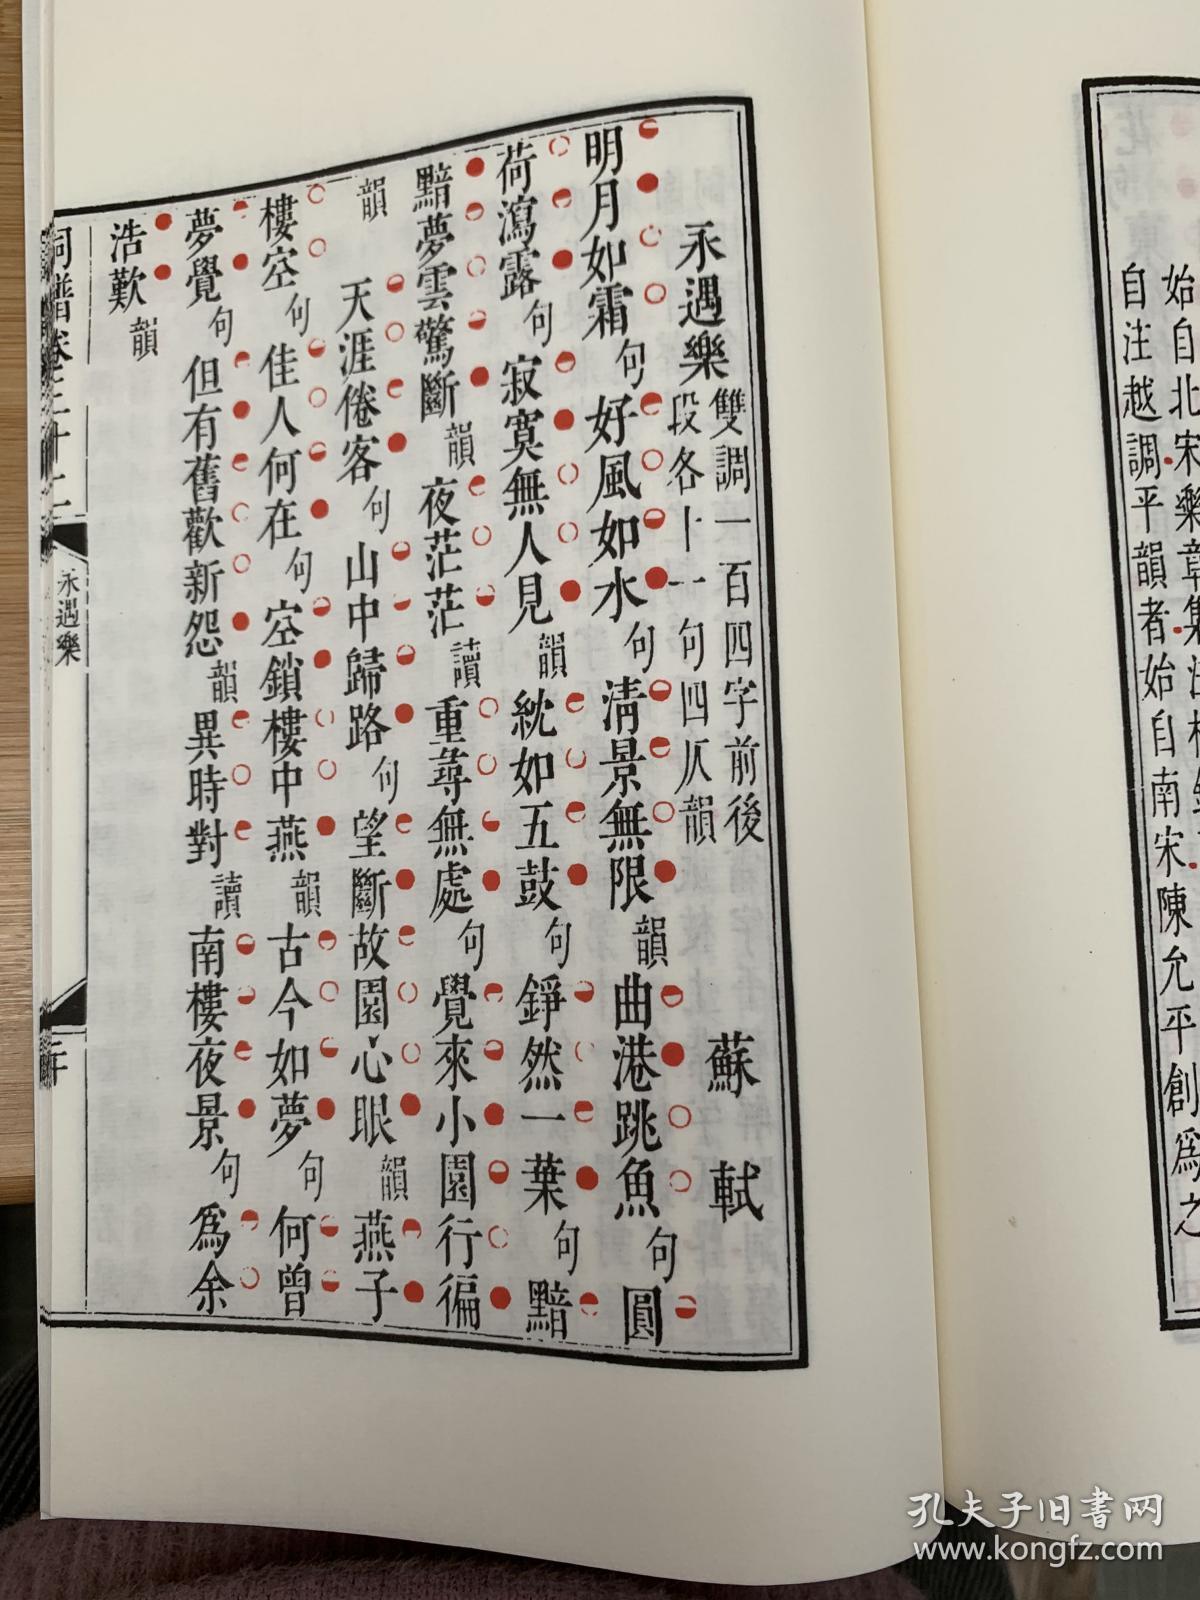 始自北宋樂章集注
自注越調平韻者始自南宋陳允平創爲之
永遇樂
雙調一百四字前後
段各十一句四仄韻
蘇軾
明月如霜句好風如水句淸景無限韻曲港跳魚句圓
荷瀉露句寂寞無人見韻紞如五鼓句錚然一葉句黯
黯夢雲驚斷韻夜茫茫讀重尋無處句覺來小園行徧
韻
天涯倦客句山中歸路句望斷故園心眼韻燕子
樓空句佳人何在句空鎖樓中燕韻古今如夢句何曾
夢覺句但有舊歡新怨韻異時對讀南樓夜景句爲余
浩歎韻
詞譜卷三十二
永遇樂
孔夫子旧书网
www.kongfz.com